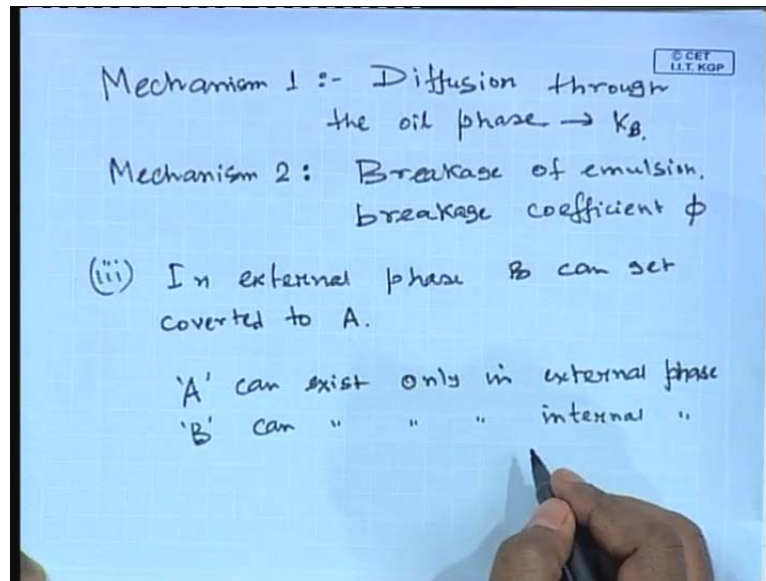 © CET
I.I.T. KGP
Mechanism 1 :- Diffusion through
the oil phase → KB.
Mechanism 2 : Breakage of emulsion.
breakage coefficient ϕ
(iii) In external phase B can get
coverted to A.
'A' can exist only in external phase
'B' can " " " internal "